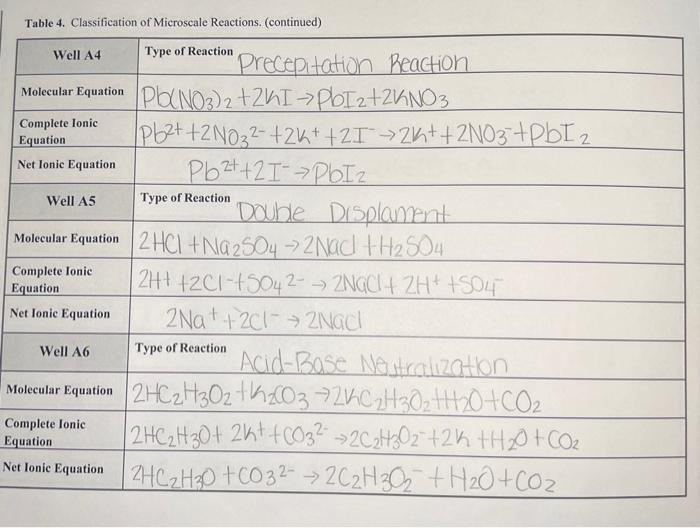 Table 4. Classification of Microscale Reactions. (continued)
Well A4 Type of Reaction Precepitation Reaction
Molecular Equation Pb(NO3)2+2KI→PbI2+2KNO3
Complete Ionic Equation Pb2+ +2NO3 2- +2K+ +2I- →2K+ +2NO3- +PbI2
Net Ionic Equation Pb2+ +2I- →PbI2
Well A5 Type of Reaction Double Displament
Molecular Equation 2HCl +Na2SO4 →2Nacl +H2SO4
Complete Ionic Equation 2H+ +2Cl- +SO4 2- → 2NaCl + 2H+ +SO4-
Net Ionic Equation 2Na+ +2Cl- → 2NaCl
Well A6 Type of Reaction Acid-Base Neutralization
Molecular Equation 2HC2H3O2 +K2CO3 →2KC2H3O2+H2O+CO2
Complete Ionic Equation 2HC2H3O+ 2K+ +CO3 2- →2C2H3O2- +2K +H2O+CO2
Net Ionic Equation 2HC2H3O +CO3 2- → 2C2H3O2- +H2O+CO2